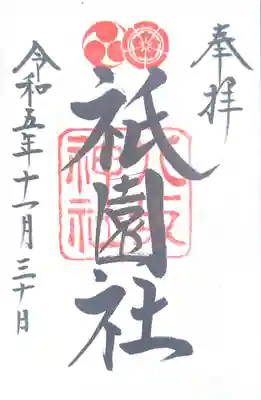 奉拝
八坂神社
祇園社
令和五年十一月三十日